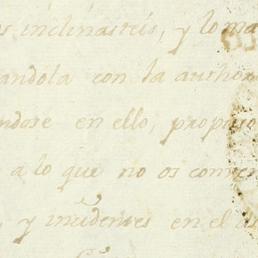 inclinasteis, y lo ma
andola con la author
ndose en ello, propuso
a lo que no os conven
y incidentes en el as